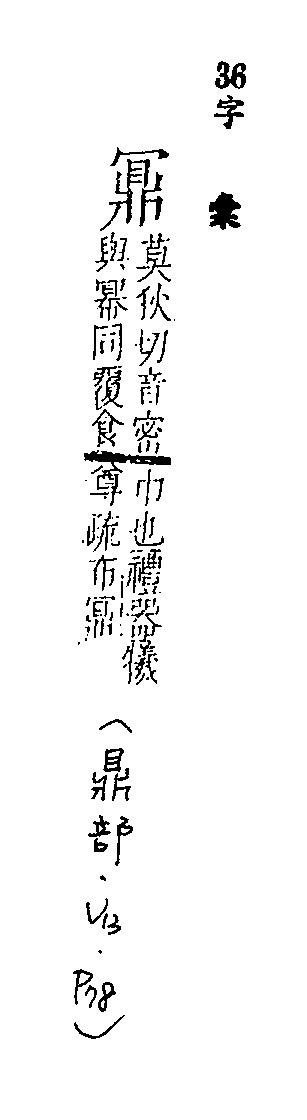 36字彙
鼏
莫狄切音密
與冪同覆食
巾也禮器犧
尊疏布鼏
（鼎部．V13．P78）